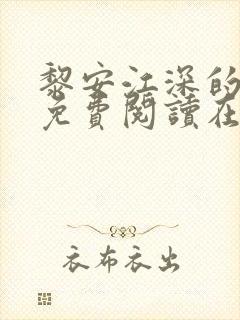 黎安江深的
免費閱讀在
衣布衣出